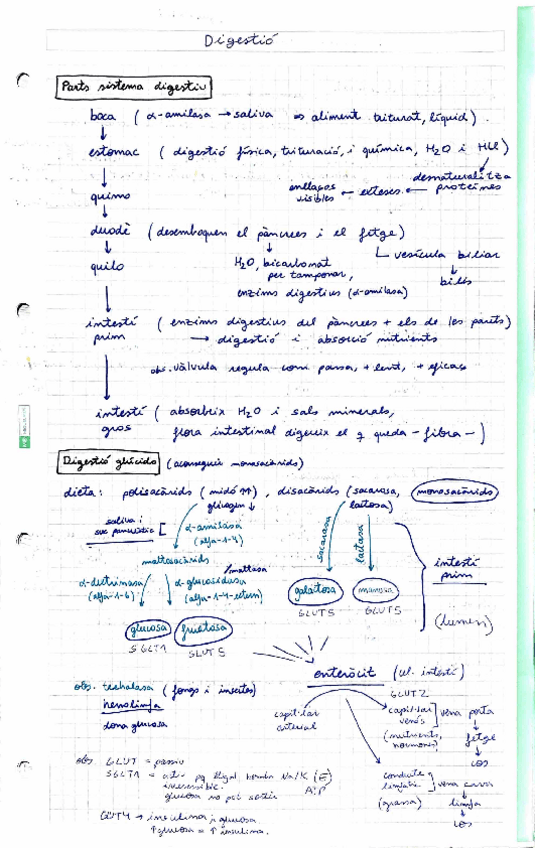 Digestió
Parts sistema digestiu
boca (α-amilasa → saliva ⇒ aliment triturat, líquid).
↓
estomac (digestió física, trituració, i química, H2O i HCl)
desnaturalitza
enllaços visibles ← esteses ← proteïnes
quimo
↓
duodè (desemboquen el pàncrees i el fetge)
vesícula biliar
↓
bilis
H2O, bicarbonat
per tamponar,
enzims digestius (α-amilasa)
quilo
↓
intestí prim (enzims digestius del pàncrees + els de les parets)
→ digestió i absorció nutrients
obs. vàlvula regula com passa, + lent, + eficaç
↓
intestí gros (absorbeix H2O i sals minerals,
flora intestinal digereix el q queda - fibra -)
Digestió glúcids (aconseguir monosacàrids)
dieta: polisacàrids (midó ↑↑), disacàrids (sacarosa, monosacàrids
glicogen ↓
lactosa)
saliva i
suc pancreàtic
α-amilasa
(alfa-1-4)
sacarasa
lactasa
maltosacàrids
/maltasa
α-dextrinasa
(alfa-1-6)
α-glucosidasa
(alfa-1-4-
intestí
prim
(lumen)
galactosa
GLUT5
GLUT5
glucosa
SGLT1
fructosa
GLUT5
enteròcit (cel. intestí)
GLUT2
obs. trehalasa (fongs i insectes)
hemolimfa
dona glucosa
capil·lar
arterial
capil·lar
venós
vena porta
↓
fetge
↓
cos
(nutrients,
hormones)
conducte
limfàtic
(grassa)
vena cava
limfa
↓
cos
obs. GLUT = passiu
SGLT1 = actiu pq
Na/K (E)
ATP
irreversible.
glucosa no pot sortir
GLUT4 → insulina i glucosa
↑glucosa = ↑ insulina.